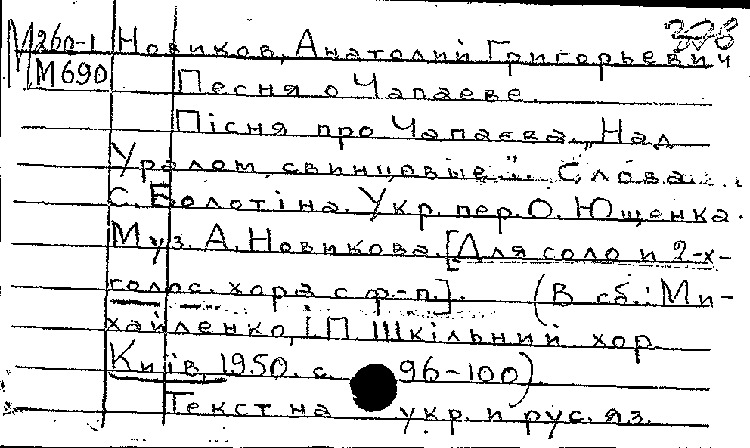 М260-1 Новиков, Анатолий Григорьевич
М690 Песня о Чапаеве.
Пісня про Чапаєва. „Над
Уралом свинцовые...". Слова
С. Болотіна. Укр. пер. О. Ющенка.
Муз. А. Новикова. [Для соло и 2-х-
голос. хора с ф-п.]. (В сб.: Ми-
хайленко, І П Шкільний хор.
Київ, 1950. с. 96-100)
Текст на укр. и рус. яз.